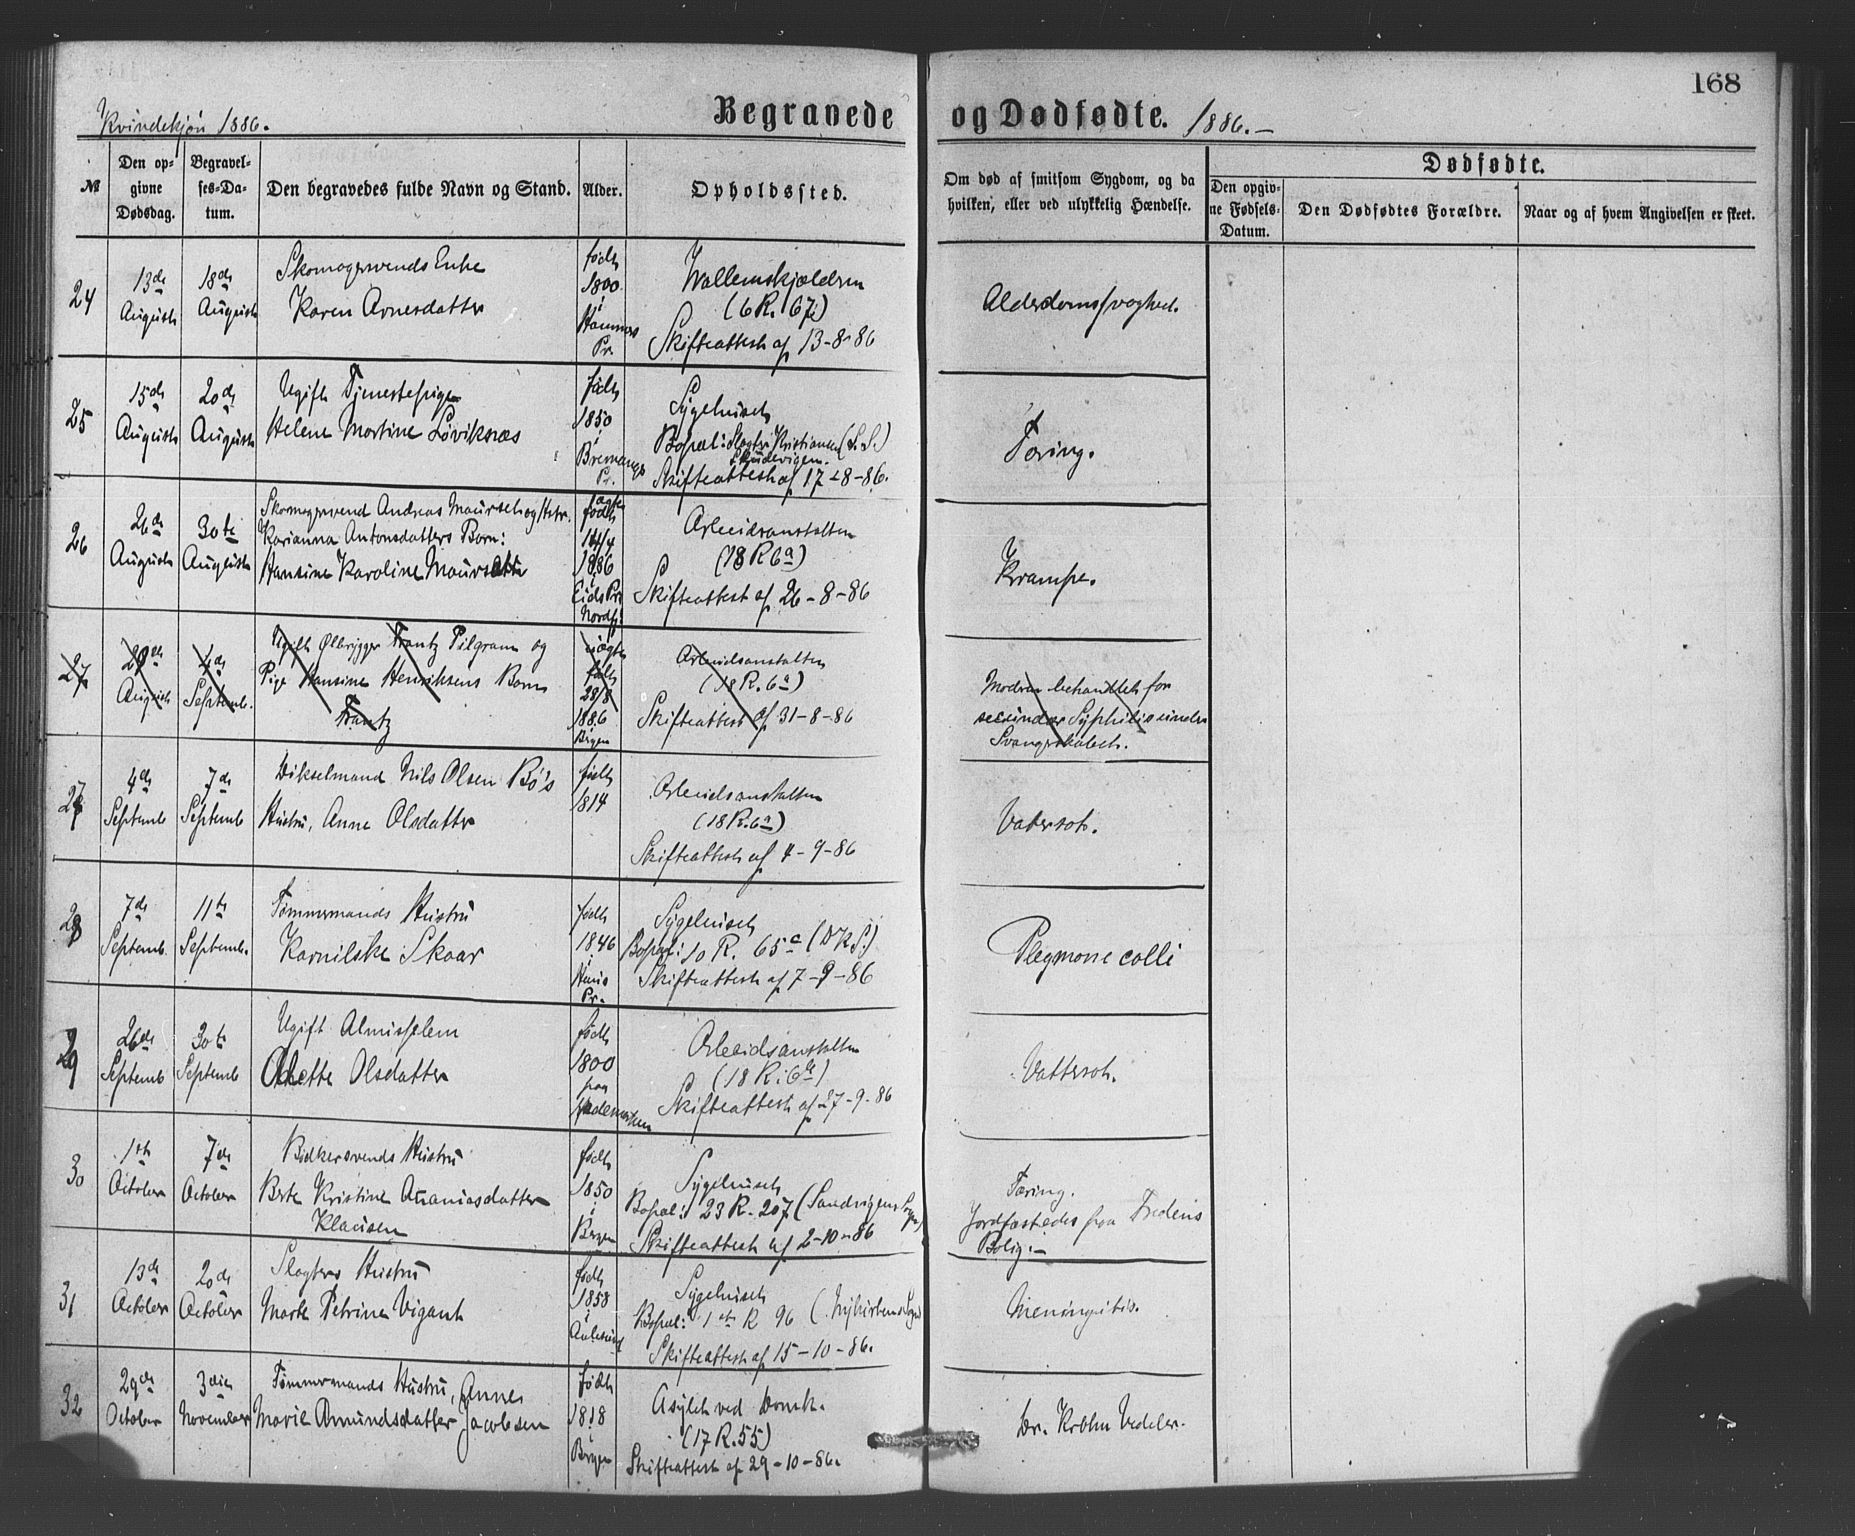 168
Kvindekjøn 1886.
Begravede og Dødfødte. 1886.
№
Den opgivne Dødsdag.
Begravelses-Datum.
Den begravedes fulde Navn og Stand.
Alder.
Opholdssted.
Om død af smitsom Sygdom, og da hvilken, eller ved ulykkelig Hændelse.
Dødfødte.
Den opgivne Fødsels-Datum.
Den Dødfødtes Forældre.
Naar og af hvem Angivelsen er skeet.
24
13de August
18de August
Skomagersvends Enke
Karen Arnesdatter
født 1800 i Hammers Pr.
Wallemskjælderen
(6 R. 67)
Skifteattest af 13-8-86
Alderdomssvaghed.
25
15de August
20de August
Ugift Tjenestepige
Helene Martine Løviksnæs
født 1850 i Bremanger Pr.
Sygehuset
Bopæl: Slagter Kristiansen
Skifteattest af 17-8-86.
Tæring.
26
26de August
30te August
Skomagersvend Andreas Maurseth og Hstr.
Karianna Antonsdatters Barn:
Hansine Karoline Maurseth
ægte født 14/4 1886 i Eids Pr. Nordfj.
Arbeidsanstalten
(18 R 6a)
Skifteattest af 26-8-86
Krampe.
27
29de August
4de Septemb.
Ugift Ølbrygger Frantz Pilgram og
Pige Hansine Henriksens Barn
Frantz
uægte født 28/8 1886 Bergen
Arbeidsanstalten
(18 R. 6a)
Skifteattest af 31-8-86
Modren behandlet for
secundær Syphilis under
Svangerskabet.
27
4de Septemb
7de Septemb
Nils Olsen Bø's
Hustru, Anne Olsdatter
født 1814
Arbeidsanstalten
(18 R. 6a)
Skifteattest af 4-9-86
Vatersot.
28
7de Septemb
11te Septemb.
Tømmermands Hustru
Karnilske Skaar
født 1846 i Huus Pr.
Sygehuset
Bopæl: 10 R. 65c (D.K.S.)
Skifteattest af 7-9-86
Plegmone colli
29
26de Septemb
30te Septemb
Ugift Almisselem
Olsdatter
født 1800 paa
Arbeidsanstalten
(18 R. 6a)
Skifteattest af 27-9-86
Vattersot.
30
1ste October
7de October
Bødkersvends Hustru
Berte Kristine Ananiasdatter
Klausen
født 1850 i Bergen
Sygehuset
Bopæl: 23 R. 207 (Sandvigens Sogn)
Skifteattest af 2-10-86
Tæring.
Jordfæstedes fra Fredens
Bolig.
31
13de October
20de October
Slagters Hustru
Marte Petrine Vigant
født 1858 i Aalesund
Sygehuset
Bopæl: 1ste R 96 (Nykirkens Sogn)
Skifteattest af 15-10-86.
Meningitis.
32
29de October
3die November
Tømmermands Hustru, Anne
Marie Amundsdatter Jacobsen
født 1818 i Bergen
Asylet ved Domk.
(17 R. 55)
Skifteattest af 29-10-86.
Dr. Krohn Vedeler.